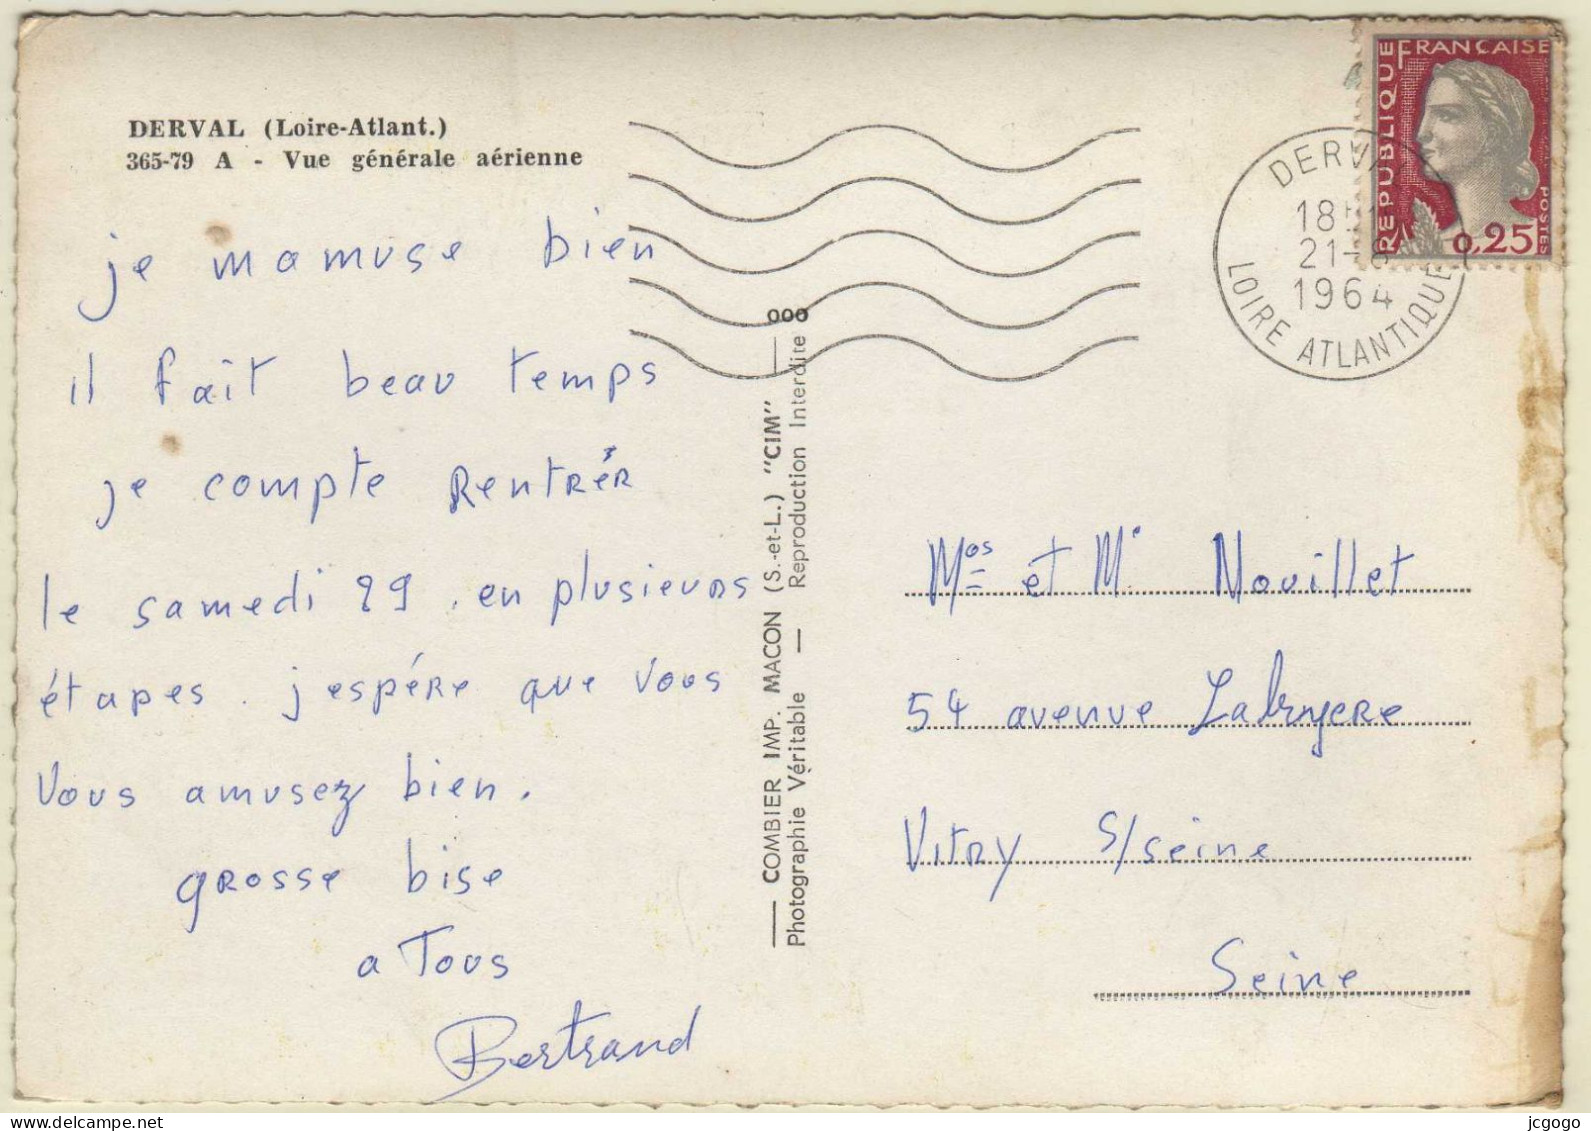 DERVAL (Loire-Atlant.)
365-79 A - Vue générale aérienne
je mamuse bien
il fait beau temps
je compte Rentrer
le samedi 29. en plusieurs
étapes. j espére que vous
vous amusez bien.
grosse bise
a Tous
Bertrand
COMBIER IMP. MACON (S.-et-L.) "CIM"
Photographie Véritable — Reproduction Interdite
000
RÉPUBLIQUE FRANÇAISE
POSTES
0,25
DERVA
18
21-8
1964
LOIRE ATLANTIQUE
Mos et Mr Nouillet
54 avenue Labryere
Vitry s/seine
Seine
jcgogo